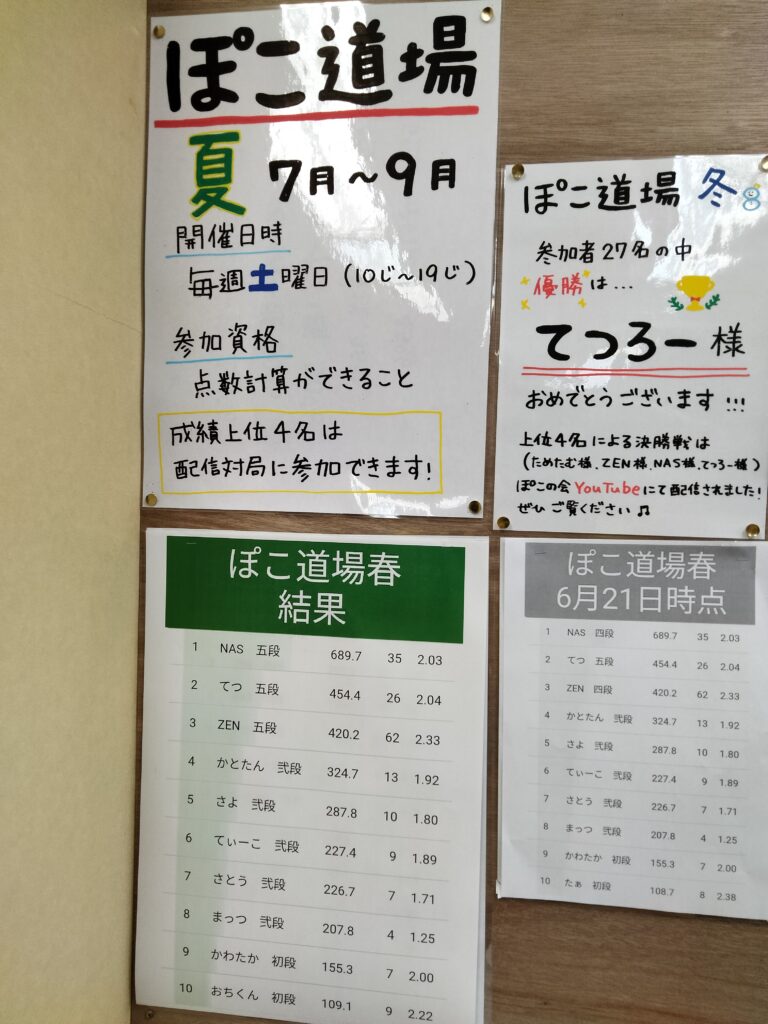 ぽこ道場
夏 7月～9月
開催日時
毎週土曜日(10じ～19じ)
参加資格
点数計算ができること
成績上位4名は
配信対局に参加できます!
ぽこ道場 冬
参加者27名の中
優勝は...
てつろー様
おめでとうございます!!!
上位4名による決勝戦は
(ためたむ様、ZEN様、NAS様、てつろー様)
ぽこの会YouTubeにて配信されました!
ぜひご覧ください♫
ぽこ道場春
結果
1 NAS 五段 689.7 35 2.03
2 てつ 五段 454.4 26 2.04
3 ZEN 五段 420.2 62 2.33
4 かとたん 弐段 324.7 13 1.92
5 さよ 弐段 287.8 10 1.80
6 てぃーこ 弐段 227.4 9 1.89
7 さとう 弐段 226.7 7 1.71
8 まっつ 弐段 207.8 4 1.25
9 かわたか 初段 155.3 7 2.00
10 おちくん 初段 109.1 9 2.22
ぽこ道場春
6月21日時点
1 NAS 四段 689.7 35 2.03
2 てつ 五段 454.4 26 2.04
3 ZEN 四段 420.2 62 2.33
4 かとたん 弐段 324.7 13 1.92
5 さよ 弐段 287.8 10 1.80
6 てぃーこ 弐段 227.4 9 1.89
7 さとう 弐段 226.7 7 1.71
8 まっつ 弐段 207.8 4 1.25
9 かわたか 初段 155.3 7 2.00
10 たぁ 初段 108.7 8 2.38